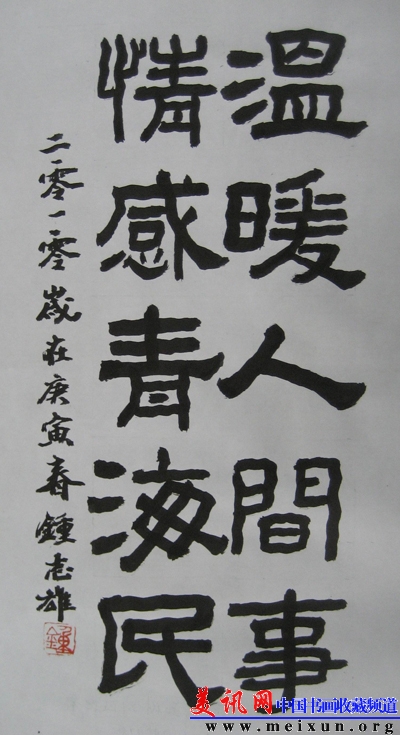 溫暖人間事
情感青海民
二零一零歲在庚寅春鍾志雄
美讯网 中国书画收藏频道
www.meixun.org